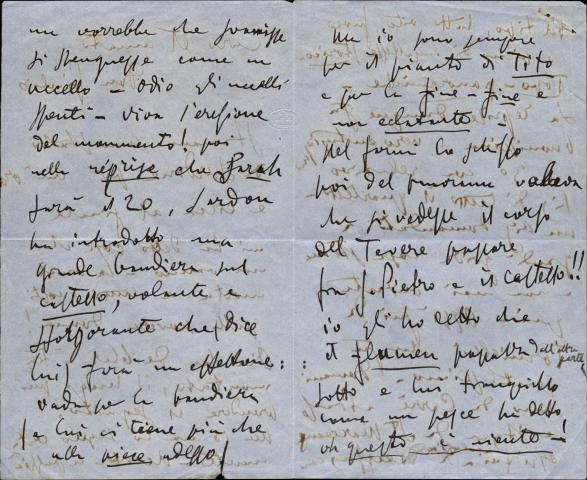 un vorrebbe che finisse
si spengesse come un
uccello - odio gli uccelli
spenti - viva l'erezione
del monumento! poi
nella réprise che Sarah
farà il 20, Sardou
ha introdotto una
grande bandiera sul
castello, volante e
che (dice
lui) farà un effettone:
vada per la bandiera
(a lui ci tiene più che
alle adesso)
Ma io sono sempre
per il pianto di Tito
e per la fine - fine e
non eclatante
nel
poi del panorama voleva
che si vedesse il corso
del Tevere passare
fra S. Pietro e il castello!!
io gli ho detto che
il flumen passava dall'altra parte
sotto e lui tranquillo
come un pesce ha detto
oh questo è niente!